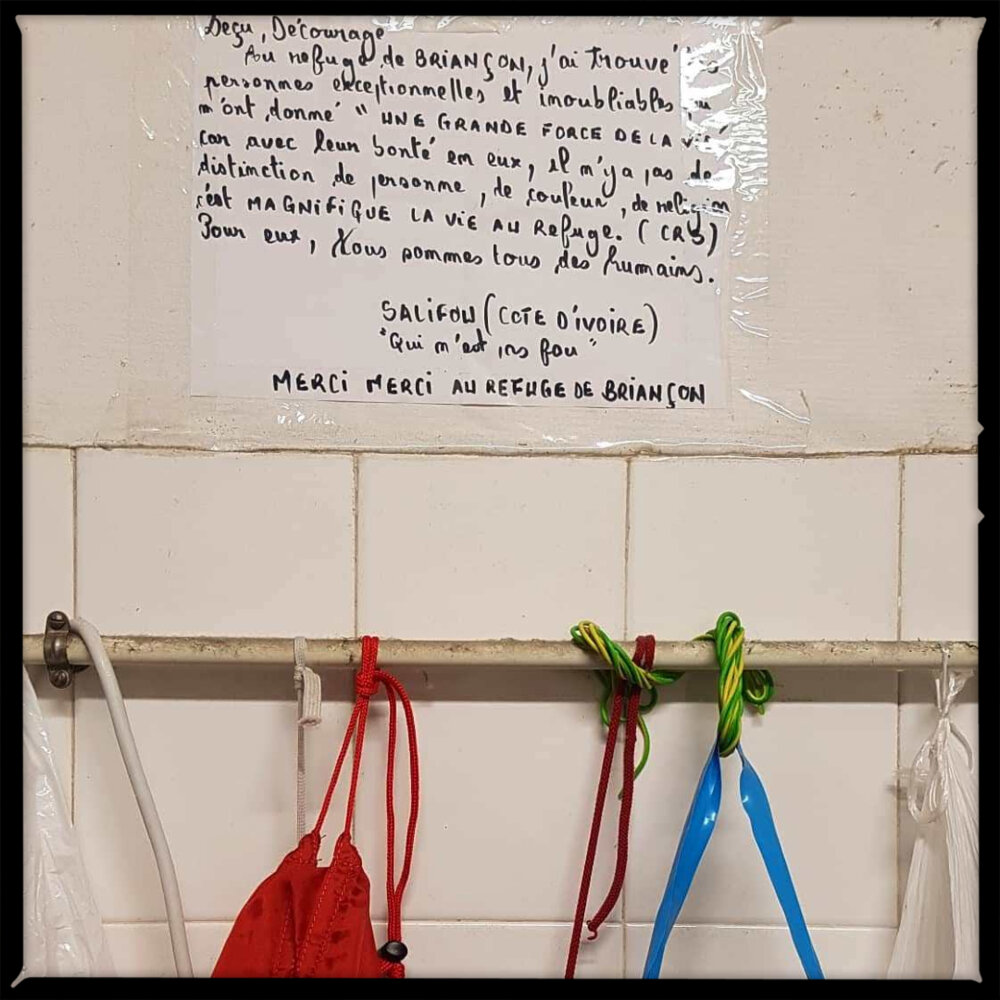 Deçu, Décourage
Au refuge de BRIANÇON, j'ai trouvé
personnes exceptionnelles et inoubliables
m'ont donné " UNE GRANDE FORCE DE LA VIE
car avec leur bonté en eux, il n'y a pas de
distinction de personne, de couleur, de religion
c'est MAGNIFIQUE LA VIE AU Refuge. (CRS)
Pour eux, Nous sommes tous des humains.
SALIFOU (COTE D'IVOIRE)
"Qui n'est pas fou"
MERCI MERCI AU REFUGE DE BRIANÇON